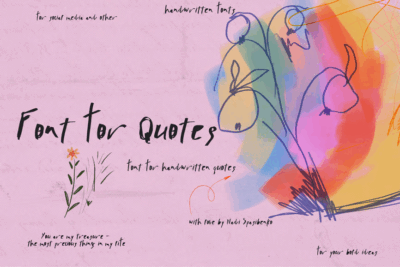 for social media and other
handwritten fonts
Font for Quotes
font for handwritten quotes
with love by Nadii Spasibenko
You are my treasure –
the most precious thing in my life
for your bold ideas